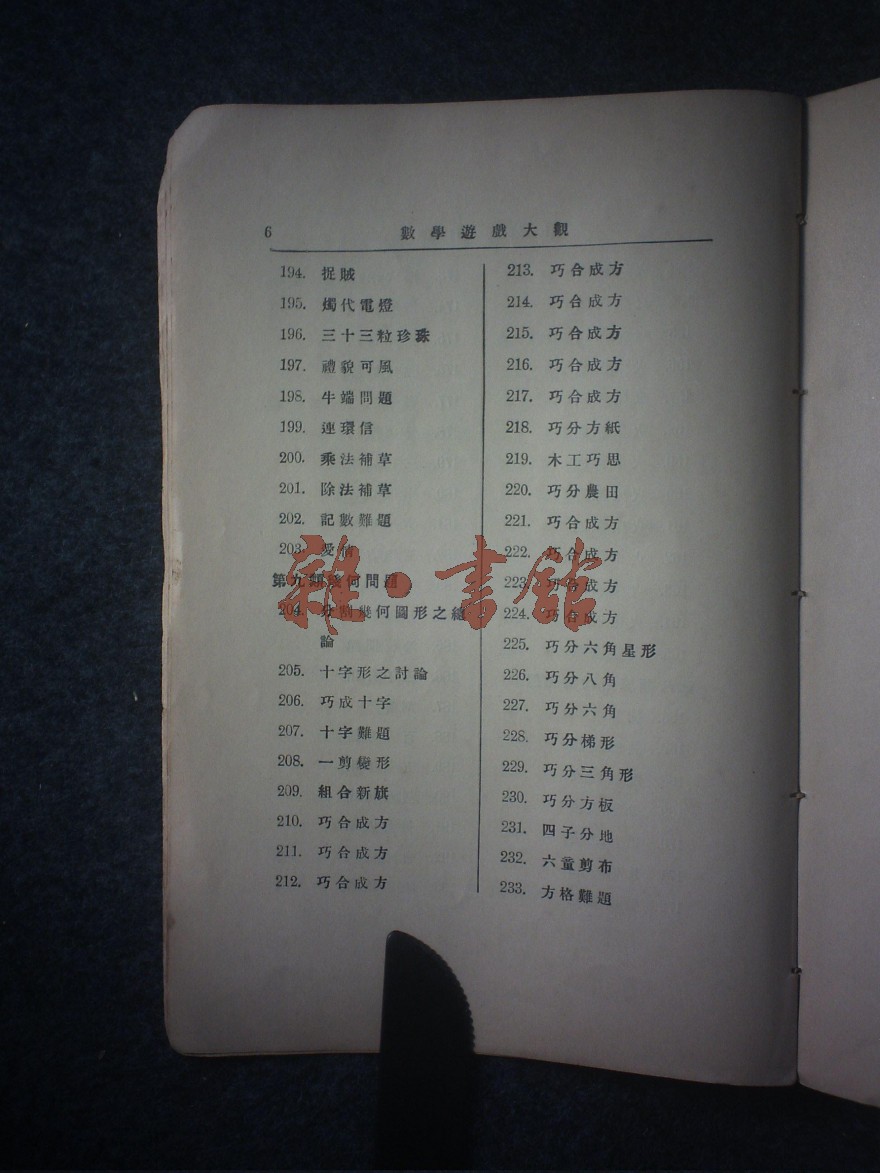 6 數學遊戲大觀
194. 捉賊
195. 燭代電燈
196. 三十三粒珍珠
197. 禮貌可風
198. 牛端問題
199. 連環信
200. 乘法補草
201. 除法補草
202. 記數難題
203. 愛情
第九類幾何問題
204. 分割幾何圖形之緒
論
205. 十字形之討論
206. 巧成十字
207. 十字難題
208. 一剪變形
209. 組合新旗
210. 巧合成方
211. 巧合成方
212. 巧合成方
213. 巧合成方
214. 巧合成方
215. 巧合成方
216. 巧合成方
217. 巧合成方
218. 巧分方紙
219. 木工巧思
220. 巧分農田
221. 巧合成方
222. 巧合成方
223. 巧合成方
224. 巧合成方
225. 巧分六角星形
226. 巧分八角
227. 巧分六角
228. 巧分梯形
229. 巧分三角形
230. 巧分方板
231. 四子分地
232. 六童剪布
233. 方格難題
雜·書館